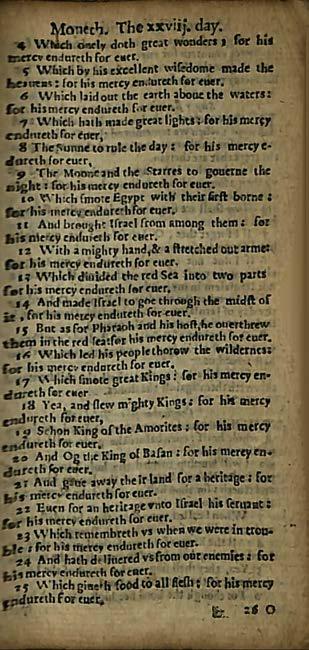 Moneth. The xxviij. day.
4 Which onely doth great wonders; for his
mercy endureth for euer.
5 Which by his excellent wisedome made the
heauens: for his mercy endureth for euer.
6 Which laid out the earth aboue the waters:
for his mercy endureth for euer.
7 Which hath made great lights: for his mercy
endureth for euer,
8 The Sunne to rule the day: for his mercy e-
dureth for euer,
9 The Moone and the Starres to gouerne the
night: for his mercy endureth for euer.
10 Which smote Egypt with their first borne:
for his mercy endureth for euer.
11 And brought Israel from among them: for
his mercy endureth for euer.
12 With a mighty hand, & a stretched out arme:
for his mercy endureth for euer.
13 Which diuided the red Sea into two parts
for his mercy endureth for euer,
14 And made Israel to goe through the midst of
it, for his mercy endureth for euer.
15 But as for Pharaoh and his host, he ouerthrew
them in the red sea: for his mercy endureth for euer.
16 Which led his people thorow the wilderness:
for his mercy endureth for euer.
17 Which smote great Kings: for his mercy en-
dureth for euer
18 Yea, and slew mighty Kings: for his mercy
endureth for euer,
19 Sehon King of the Amorites: for his mercy
endureth for euer.
20 And Og the King of Basan: for his mercy en-
dureth for euer.
21 And gaue away their land for a heritage: for
his mercy endureth for euer.
22 Euen for an heritage vnto Israel his seruant:
for his mercy endureth for euer.
23 Which remembreth vs when we were in trou-
ble: for his mercy endureth for euer.
24 And hath deliuered vs from our enemies: for
his mercy endureth for euer.
25 Which giueth food to all flesh: for his mercy
endureth for euer.
26 O